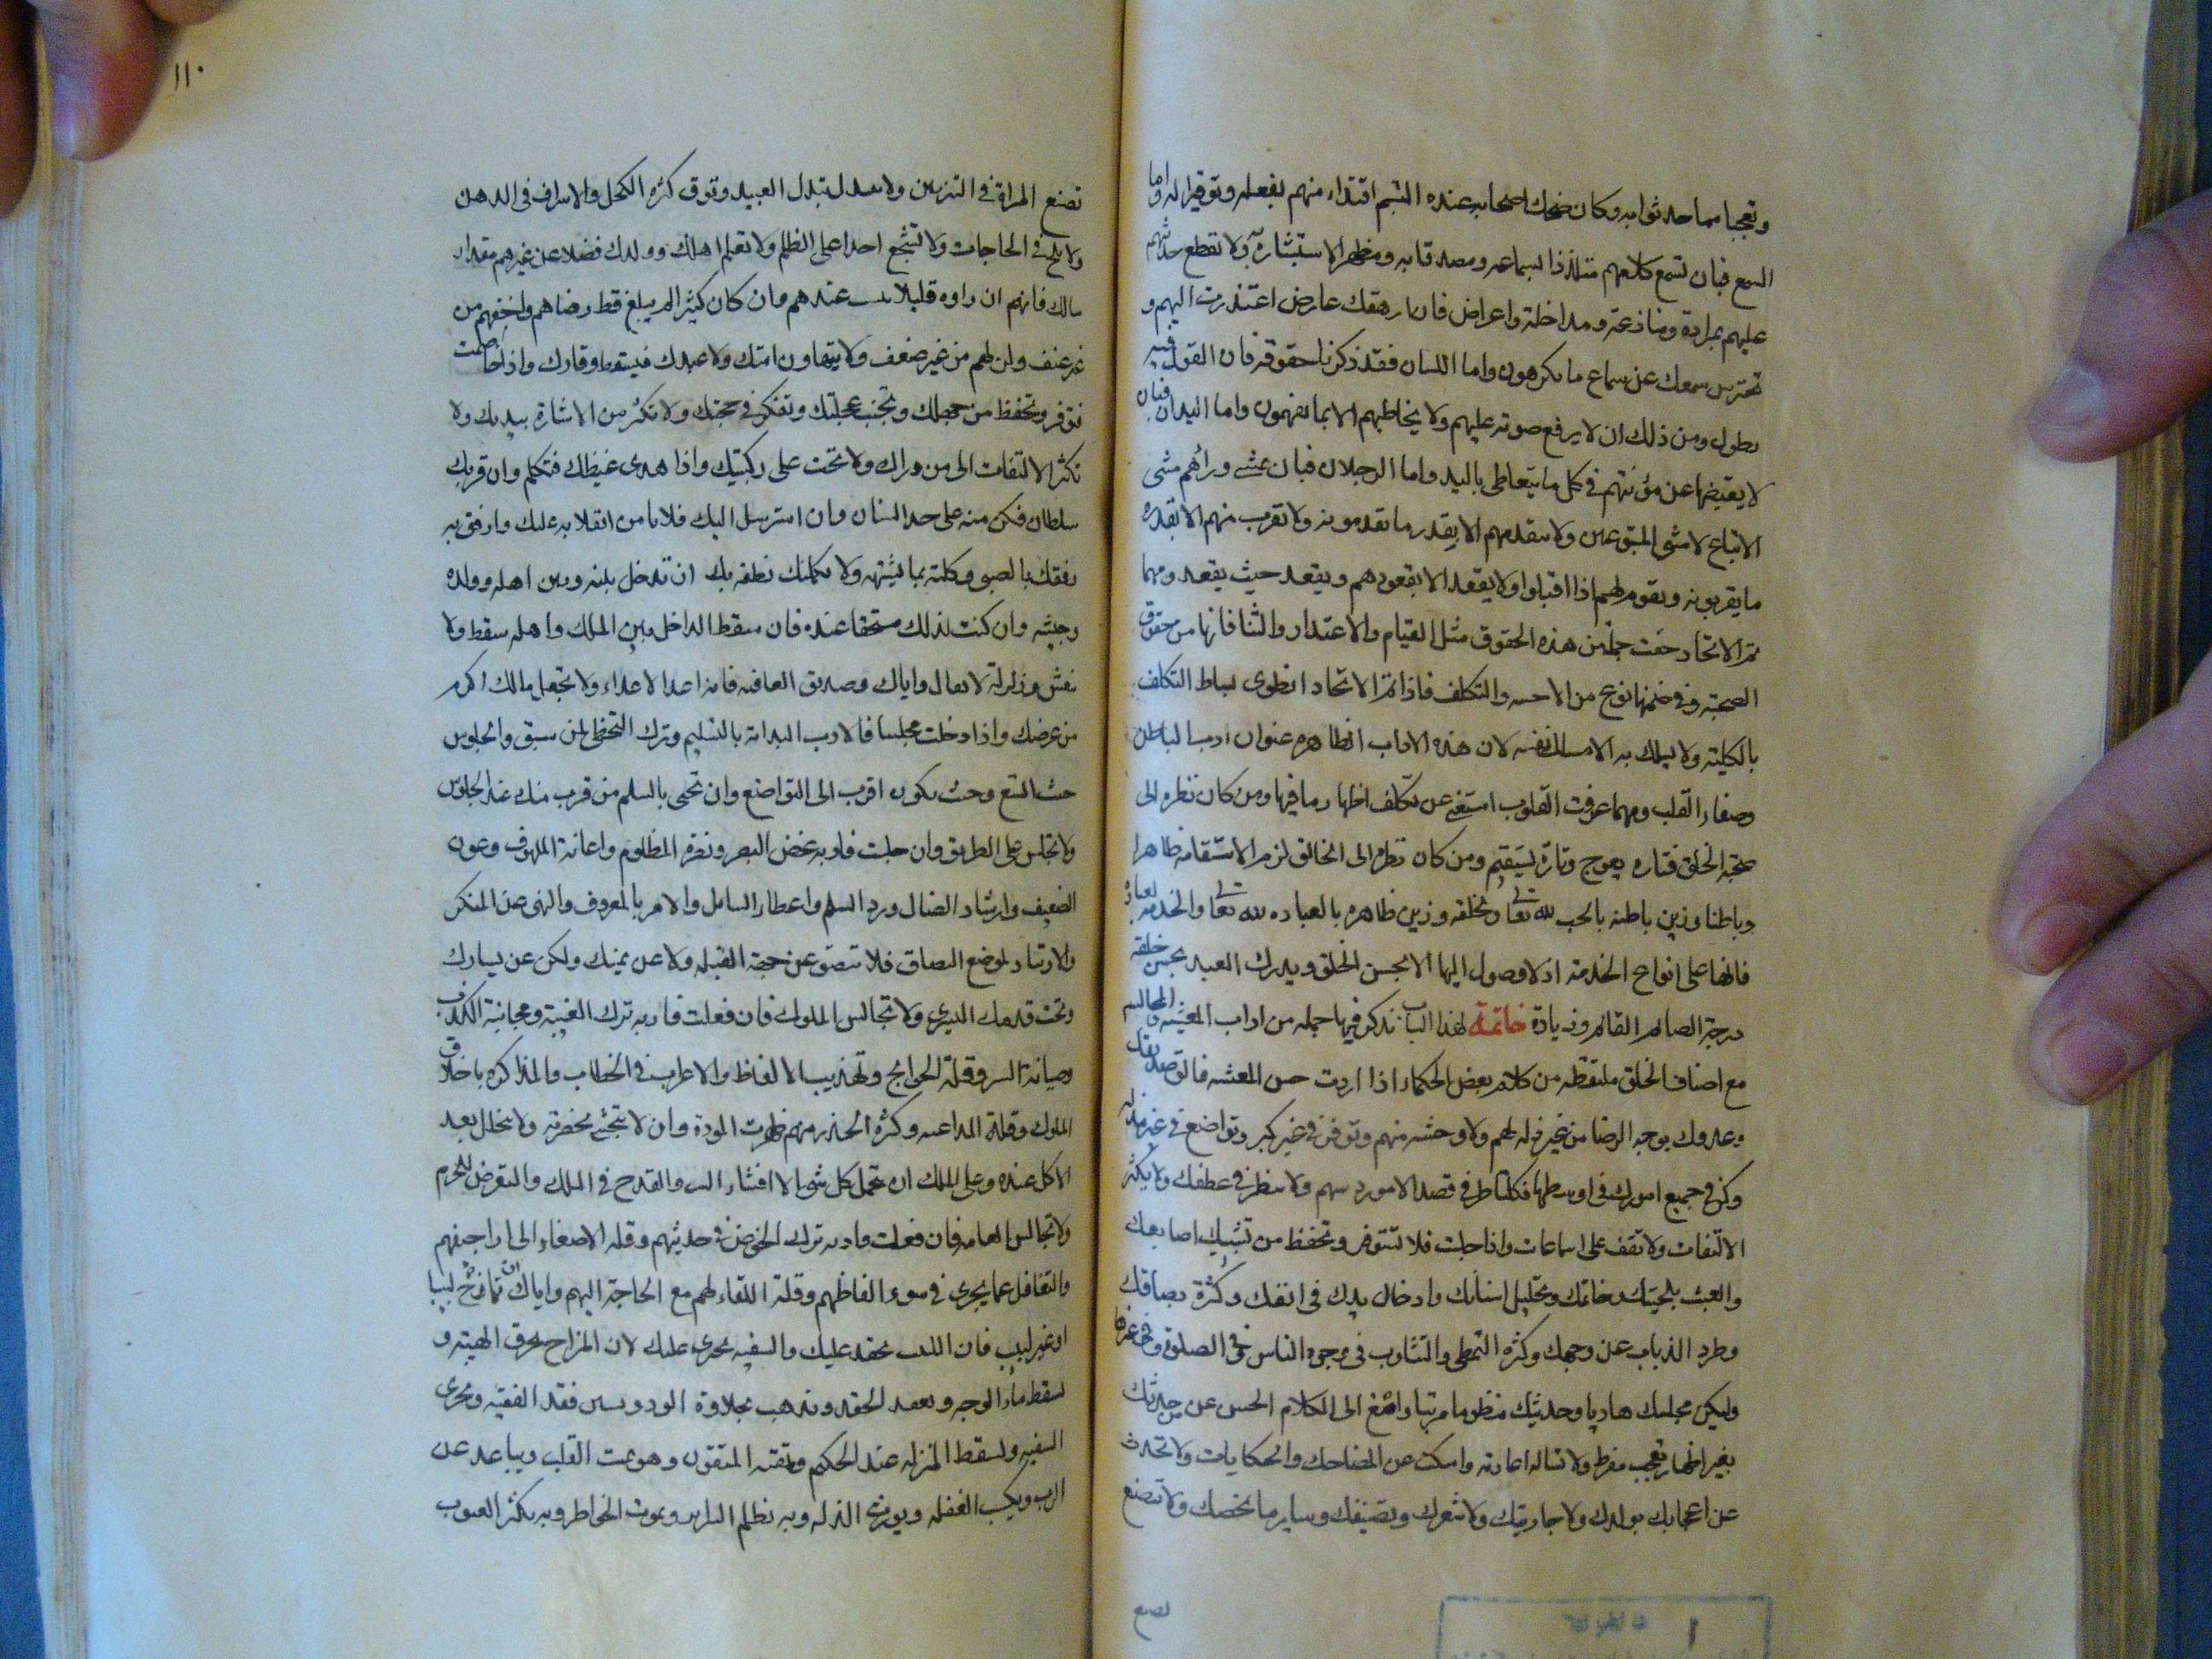 وتعجبا مما حدثوا به وكان ضحك اصحابه عنده التبسم اقتداء منهم بفعله وتوقيرا له واما
السمع فبان تسمع كلامهم متلذذا بسماعه ومصدقا به ومظهرا للاستبشار به ولا تقطع حديثهم
عليهم بمرادة ومنازعة ومداخلة واعراض فان ارهقك عارض اعتذرت اليهم و
تحترس سمعك عن سماع ما يكرهون واما اللسان فقد ذكرنا حقوقه فان القول فيه
يطول ومن ذلك ان لا يرفع صوته عليهم ولا يخاطبهم الا بما يفهمون واما اليدان فبان
لا يقبضهما عن معونتهم في كل ما يتعاطى باليد واما الرجلان فبان يمشي وراءهم مشي
الاتباع لا مشي المتبوعين ولا يتقدمهم الا بقدر ما يقدمونه ولا يقرب منهم الا بقدر
ما يقربونه ويقوم لهم اذا اقبلوا ولا يقعد الا بقعودهم ويقعد حيث يقعد ومهما
تم الاتحاد خفت جملة من هذه الحقوق مثل القيام والاعتذار والثنا فانها من حقوق
الصحبة وفي ضمنها نوع من الاجنبية والتكلف فاذا تم الاتحاد انطوى بساط التكلف
بالكلية ولا يسلك به الا مسلك نفسه لان هذه الاداب الظاهرة عنوان ادب الباطن
وصفاء القلب ومهما عرفت القلوب استغنى عن تكلف اظهار ما فيها ومن كان نظره الى
صحبة الخلق فتارة يعوج وتارة يستقيم ومن كان نظره الى الخالق لزم الاستقامة ظاهرا
وباطنا وزين باطنه بالحب لله تعالى ولخلقه وزين ظاهره بالعبادة لله تعالى والخدمة لعباده
فانها على انواع الخدمة اذ لا وصول اليها الا بحسن الخلق ويدرك العبد بحسن خلقه
درجة الصائم القائم وزيادة خاتمة لهذا الباب نذكر فيها جملة من اداب المعيشة والمجالسة
مع اصناف الخلق ملتقطة من كلام بعض الحكماء اذا اردت حسن المعيشة فالق صديقك
وعدوك بوجه الرضا من غير ذلة لهم ولا وحشة منهم وتوقر في غير كبر وتواضع في غير مذلة
وكن في جميع امورك في اوسطها فكلا طرفي قصد الامور ذميم ولا تنظر في عطفك ولا تكثر
الالتفات ولا تقف على الجماعات واذا جلست فلا تستوفز وتحفظ من تشبيك اصابعك
والعبث بلحيتك وخاتمك وتخليل اسنانك وادخال يدك في انفك وكثرة بصاقك
وطرد الذباب عن وجهك وكثرة التمطي والتثاوب في وجوه الناس في الصلوة وفي غيرها
وليكن مجلسك هاديا وحديثك منظوما مرتبا واصغ الى الكلام الحسن عن من حدثك
بغير اظهار تعجب مفرط ولا تساله اعادته واسكت عن المضاحك والحكايات ولا تحدث
عن اعجابك بولدك ولا جاريتك ولا شعرك وتصنيفك وساير ما يخصك ولا تتصنع
تصنع
١١٠
تصنع المراة في التزيين ولا تتبذل تبذل العبيد وتوق كثرة الكحل والاسراف في الدهن
ولا تلح في الحاجات ولا تشجع احدا على الظلم ولا تعلم اهلك وولدك فضلا عن غيرهم مقدار
مالك فانهم ان راوه قليلا هنت عندهم وان كان كثيرا لم يبلغ قط رضاهم واخفهم من
غير عنف ولن لهم من غير ضعف ولا تهازل امتك ولا عبدك فيسقط وقارك واذا خاصمت
فتوقر وتحفظ من جهلك وتجنب عجلتك وتفكر في حجتك ولا تكثر من الاشارة بيديك ولا
تكثر الالتفات الى من وراك ولا تجث على ركبتيك واذا هدى غيظك فتكلم وان قربك
سلطان فكن منه على حد السنان وان استرسل اليك فلا تامن انقلابه عليك وارفق به
رفقك بالصبي وكلمه بما يشتهيه ولا يحملنك لطفه بك ان تدخل بينه وبين اهله وولده
وحشمه وان كنت لذلك مستحقا عنده فان سقطة الداخل بين الملك واهله سقطة لا
تنعش وزلة لا تقال واياك وصديق العافية فانه اعدا الاعداء ولا تجعل مالك اكرم
من عرضك واذا دخلت مجلسا فالادب البداية بالتسليم وترك التخطي لمن سبق والجلوس
حيث اتسع وحيث يكون اقرب الى التواضع وان تحيي بالسلم من قرب منك عند الجلوس
ولا تجلس على الطريق وان جلست فادبه غض البصر ونصرة المظلوم واغاثة الملهوف وعون
الضعيف وارشاد الضال ورد السلم واعطاء السايل والامر بالمعروف والنهي عن المنكر
والارتياد لموضع البصاق فلا تبصق عن جهة القبلة ولا عن يمينك ولكن عن يسارك
وتحت قدمك اليسرى ولا تجالس الملوك فان فعلت فادبه ترك الغيبة ومجانبة الكذب
وصيانة السر وقلة الحوايج وتهذيب الالفاظ والاعراب في الخطاب والمذاكرة باخلاق
الملوك وقلة المداعبة وكثرة الحذر منهم وان ظهرت المودة وان لا تتجشى بحضرته ولا تتخلل بعد
الاكل عنده وعلى الملك ان يحمل كل شي الا افشاء السر والقدح في الملك والتعرض للحرم
ولا تجالس العامة فان فعلت فادبه ترك الخوض في حديثهم وقلة الاصغاء الى اراجيفهم
والتغافل عما يجري في سوء الفاظهم وقلة اللقاء لهم مع الحاجة اليهم واياك ان تمازح لبيبا
او غير لبيب فان اللبيب يحقد عليك والسفيه يجري عليك لان المزاح يخرق الهيبة و
يسقط ماء الوجه ويعقب الحقد ويذهب بحلاوة الود ويشين فقه الفقيه ويجري
السفيه ويسقط المنزلة عند الحكيم ويمقته المتقون وهو يميت القلب ويباعد عن
الرب ويكسب الغفلة ويورث الذلة وبه تظلم السراير وتموت الخواطر وبه تكثر العيوب